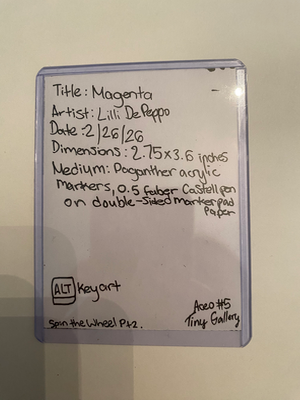 Title: Magenta
Artist: Lilli DePeppo
Date: 2/26/26
Dimensions: 2.75x3.6 inches
Medium: Poganther acrylic
markers, 0.5 faber Castell pen
on double-sided marker pad
paper
ALT Keyart
Spin the Wheel Pt2.
Aceo #5
Tiny Gallery